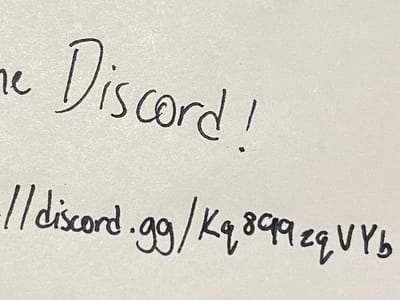 he Discord!
//discord.gg/Kq8q9zqVYb